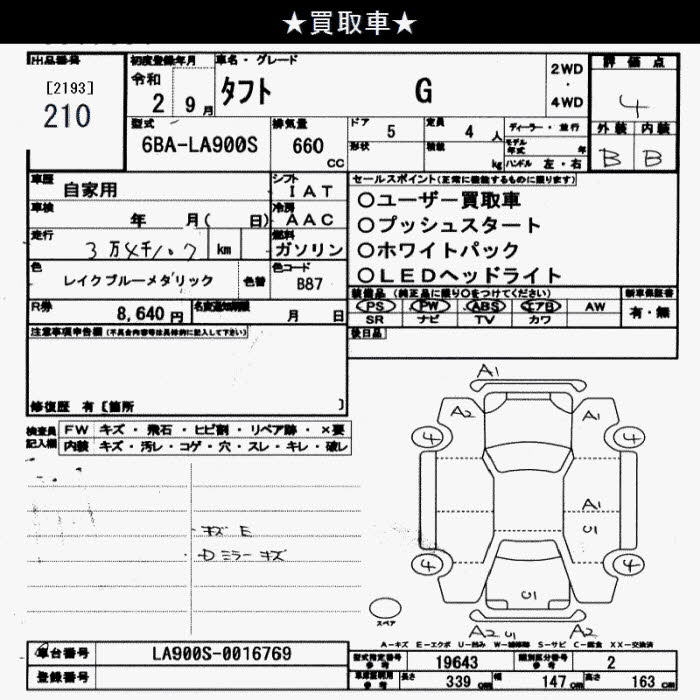 ★買取車★
出品番号
[2193]
210
初度登録年月
令和
2 9月
車名・グレード
タフト G
2WD
・
4WD
評価点
4
外装 内装
B B
型式
6BA-LA900S
排気量
660
cc
ドア 5
形状
定員 4人
積載 kg
ディーラー・並行
モデル年式 年
ハンドル 左・右
車歴 自家用
シフト IAT
車検 年 月( 日)
冷房 AAC
走行 km
燃料 ガソリン
色 レイクブルーメタリック
色替
色コード B87
R券 8,640円
名変通知期限 月 日
セールスポイント(正常に機能するものに限ります)
○ユーザー買取車
○プッシュスタート
○ホワイトパック
○LEDヘッドライト
装備品 (純正品に限り○をつけてください)
PS PW ABS エアB AW
SR ナビ TV カワ
新車保証書
有・無
後日品
注意事項申告欄(不具合内容等は具体的に記入して下さい)
修復歴 有〔箇所 〕
検査員
記入欄
FW キズ・飛石・ヒビ割・リペア跡・×要
内装 キズ・汚レ・コゲ・穴・スレ・キレ・破レ
・キズ E
・D ミラー キズ
A1
A2 A1
4 4
A1
U1
4 4
U1
A2 U1 A2
スペア
A-キズ E-エクボ U-凹み W-補修跡 S-サビ C-腐食 XX-交換済
車台番号 LA900S-0016769
登録番号
型式指定番号
参考
19643
類別区分番号
参考
2
車庫証明用
参考
長さ 339cm
幅 147cm
高さ 163cm